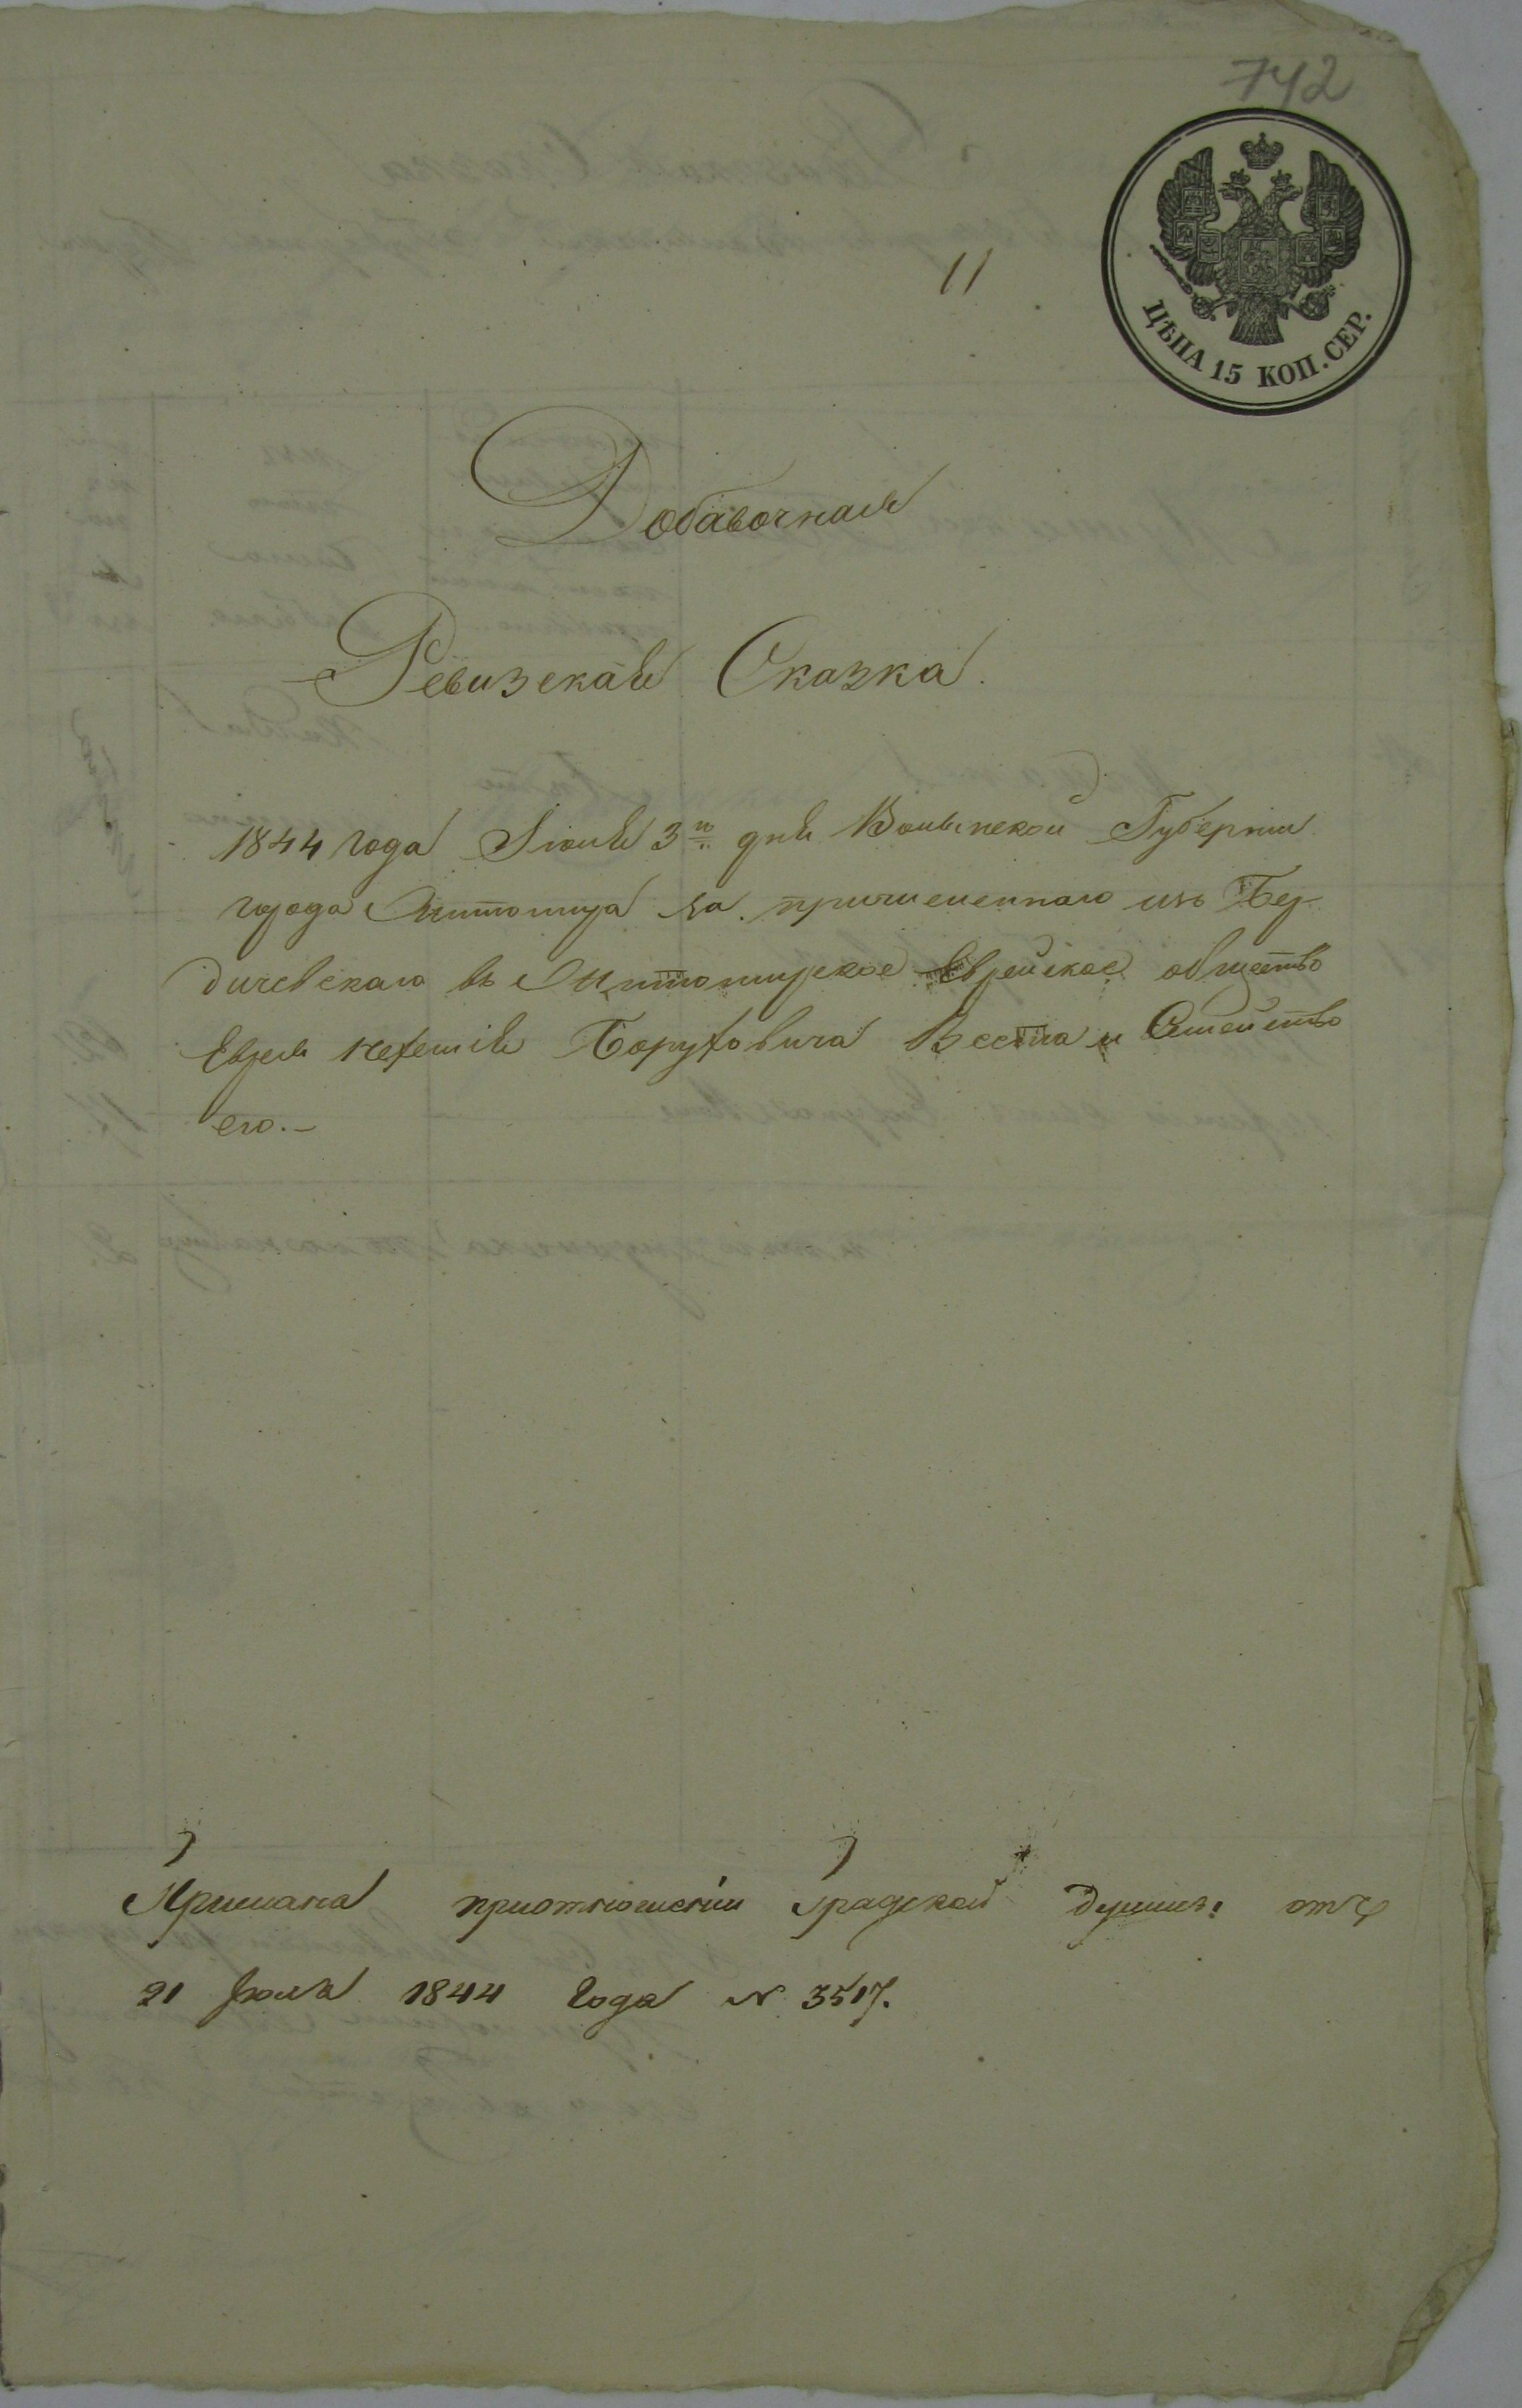 742
11
ЦѢНА 15 КОП. СЕР.
Добавочная
Ревизская Сказка.
1844 года Іюля 3го дня Волынской Губерніи
города Житомира за причисленнаго изъ Бер-
дичевскаго въ Житомирское Еврейское общество
Еврея Нехемія Боруховича и Семейство
его.-
при отношеніи Градской Думы: отъ
21 Іюля 1844 Года № 3517.